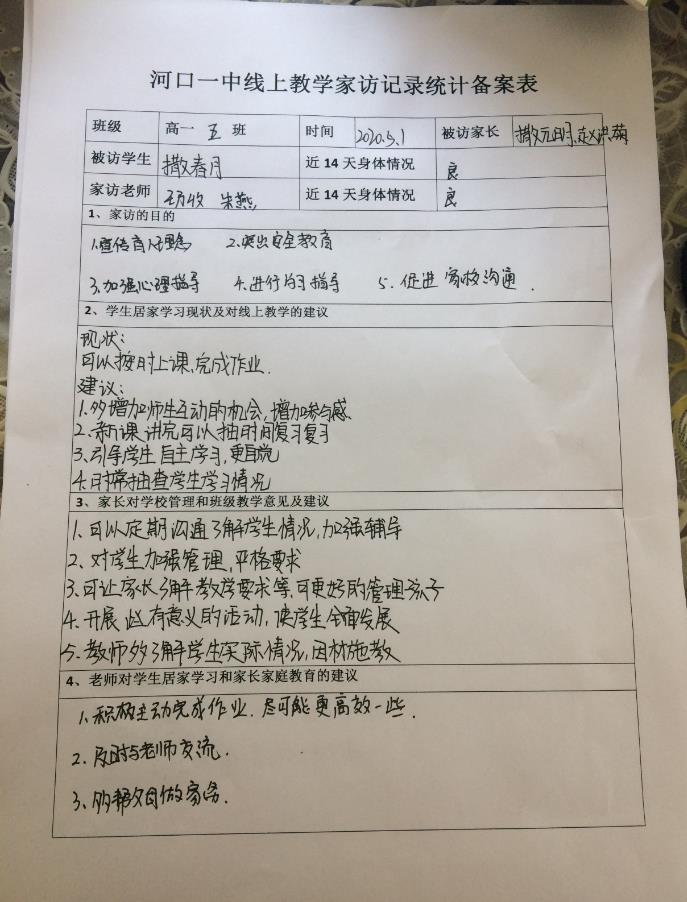 河口一中线上教学家访记录统计备案表
班级 高一 五 班 时间 2020.5.1 被访家长 撒元明、赵洪菊
被访学生 撒春月 近14天身体情况 良
家访老师 朱燕 近14天身体情况 良
1、家访的目的
1.宣传育人理念 2.突出安全教育
3.加强心理指导 4.进行学习指导 5.促进家校沟通.
2、学生居家学习现状及对线上教学的建议
现状:
可以按时上课,完成作业.
建议:
1.多增加师生互动的机会,增加参与感.
2.新课讲完可以抽时间复习复习
3.引导学生自主学习,更自觉
4.时常抽查学生学习情况
3、家长对学校管理和班级教学意见及建议
1.可以定期沟通了解学生情况,加强辅导
2.对学生加强管理,严格要求
3.可让家长了解教学要求等,可更好的管理孩子
4.开展些有意义的活动,使学生全面发展
5.教师多了解学生实际情况,因材施教
4、老师对学生居家学习和家长家庭教育的建议
1.积极主动完成作业.尽可能更高效一些.
2.及时与老师交流.
3.多帮父母做家务.